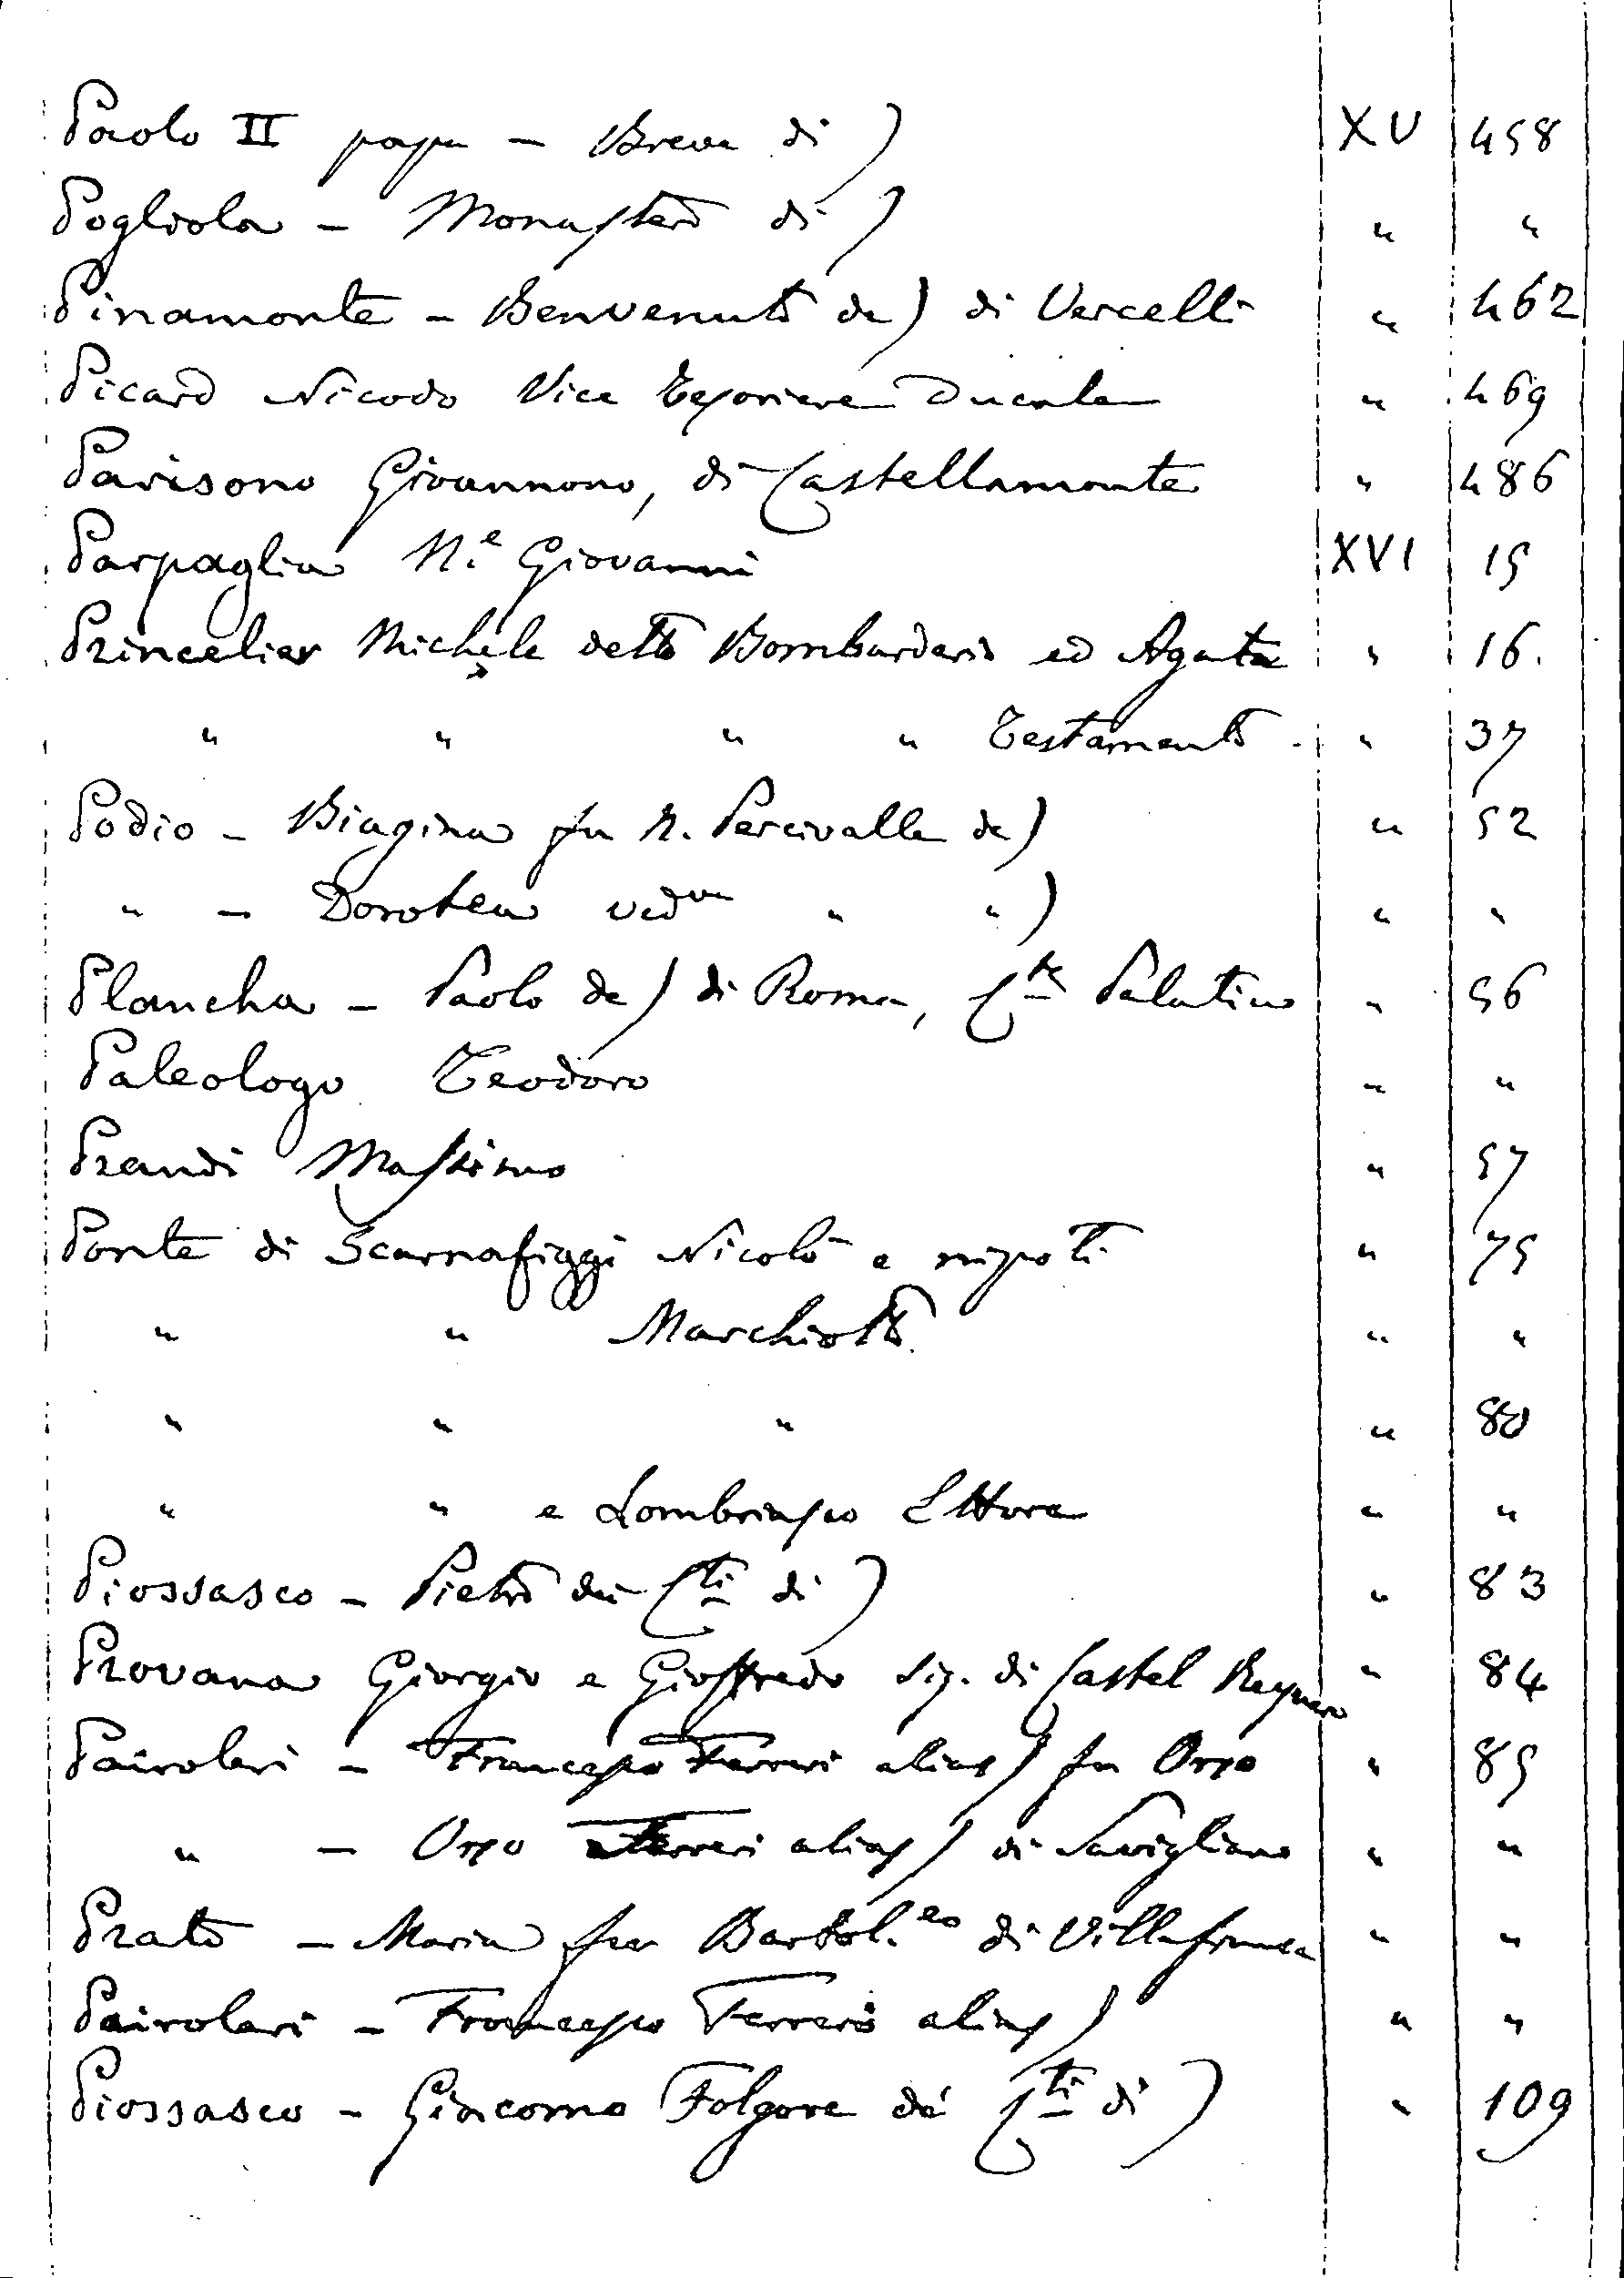 Paolo II papa - Breve di) XV 458
Pogliola - Monastero di) " "
Pinamonte - Benvenuto de) di Vercelli " 462
Picard Nicodo Vice Tesoriere Ducale " 469
Parisono Giovannono, di Castellamonte " 486
Parpaglia N.e Giovanni XVI 15
Princelier Michele detto Bombarderio ed Agata " 16.
" " " " Testamento - " 37
Podio - Biagina fu N. Percivalle de) " 52
" - Dorotea ved.va " ") " "
Plancha - Paolo de) di Roma, Cte Palatino " 56
Paleologo Teodoro " "
Prandi Massimo " 57
Ponte di Scarnafiggi Nicolò e nipoti " 75
" " Marchiotto " "
" " " " 80
" " e Lombriasco Ettore " "
Piossasco - Pietro dei Cti di) " 83
Provana Giorgio e Gioffredo Sig. di Castel Reynero " 84
Pairoleri - Francesco Ferreri alias) fu Orso " 85
" - Orso Ferreri alias) di Savigliano " "
Prato - Maria fu Bartol.eo di Villafranca " "
Pairoleri - Francesco Ferreri alias) " "
Piossasco - Giacomo Folgore dei Cti di) " 109